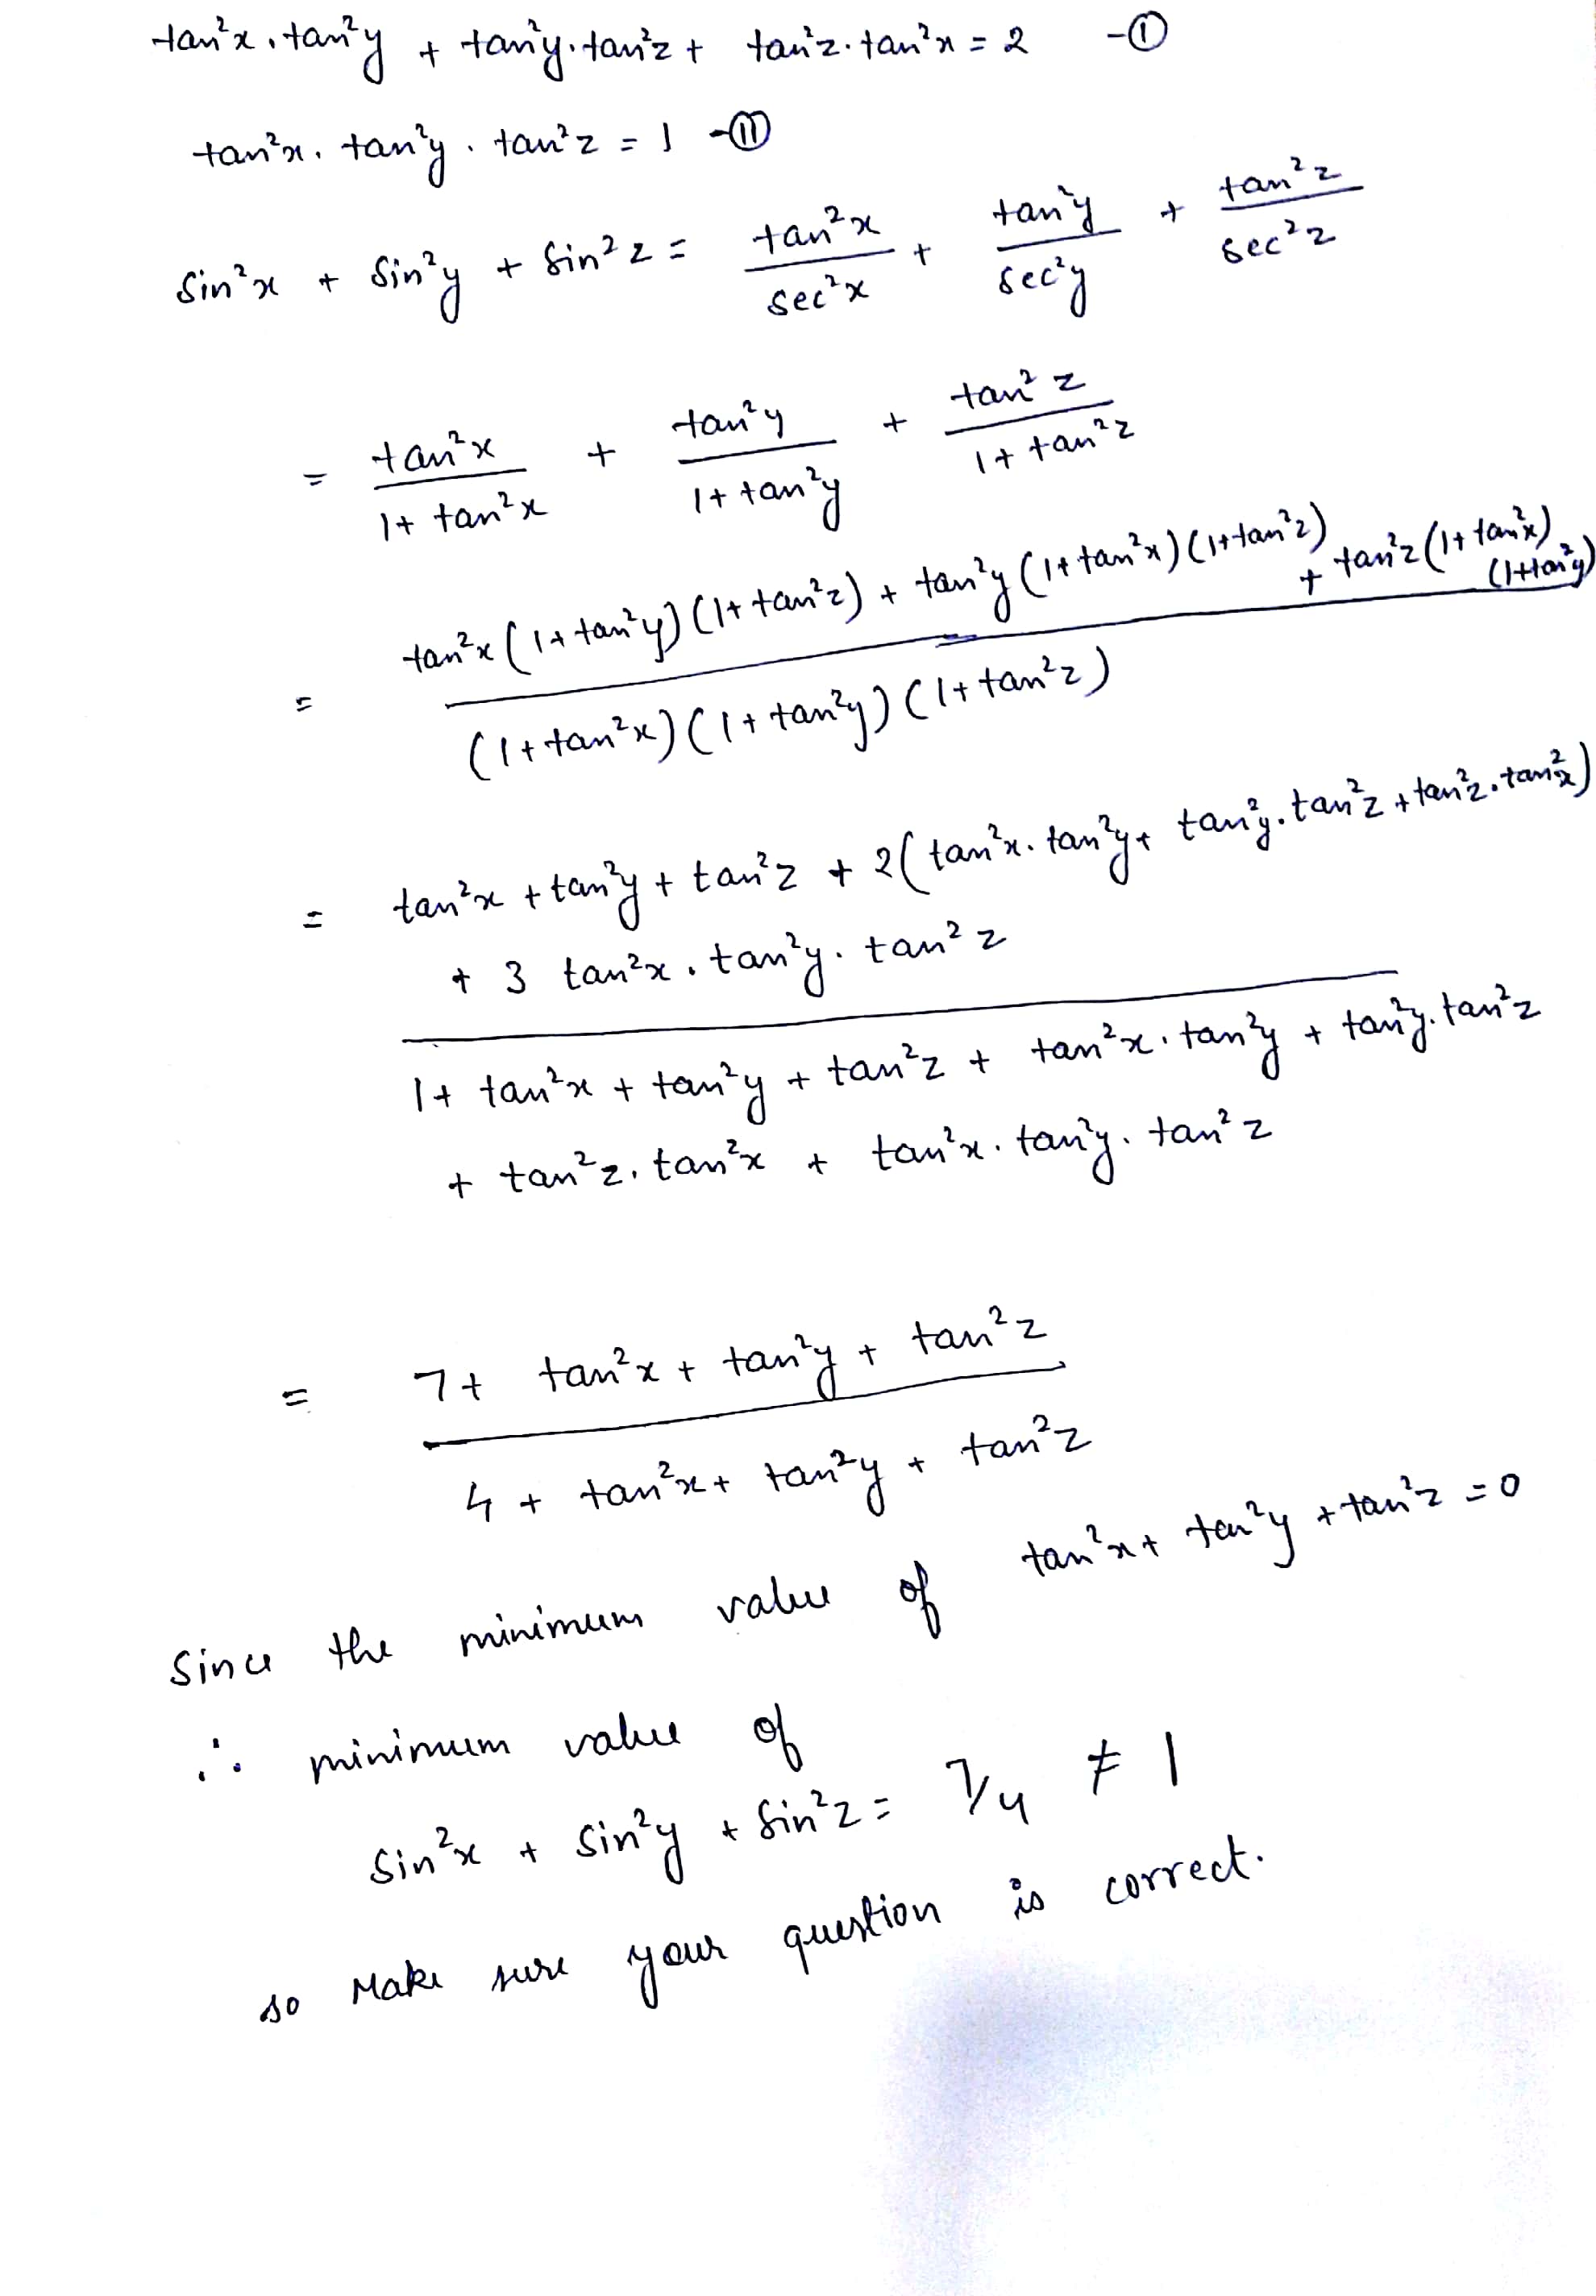 tan²x . tan²y + tan²y . tan²z + tan²z . tan²x = 2 -①
tan²x . tan²y . tan²z = 1 -⑪
sin²x + sin²y + sin²z = tan²x/sec²x + tan²y/sec²y + tan²z/sec²z
= tan²x/1+tan²x + tan²y/1+tan²y + tan²z/1+tan²z
= tan²x(1+tan²y)(1+tan²z) + tan²y(1+tan²x)(1+tan²z) + tan²z(1+tan²x)(1+tan²y)
(1+tan²x)(1+tan²y)(1+tan²z)
= tan²x + tan²y + tan²z + 2(tan²x . tan²y + tan²y . tan²z + tan²z . tan²x)
+ 3 tan²x . tan²y . tan²z
1 + tan²x + tan²y + tan²z + tan²x . tan²y + tan²y . tan²z
+ tan²z . tan²x + tan²x . tan²y . tan²z
= 7 + tan²x + tan²y + tan²z
4 + tan²x + tan²y + tan²z
Since the minimum value of tan²x + tan²y + tan²z = 0
∴ minimum value of
sin²x + sin²y + sin²z = 7/4 ≠ 1
so Make sure your question is correct.